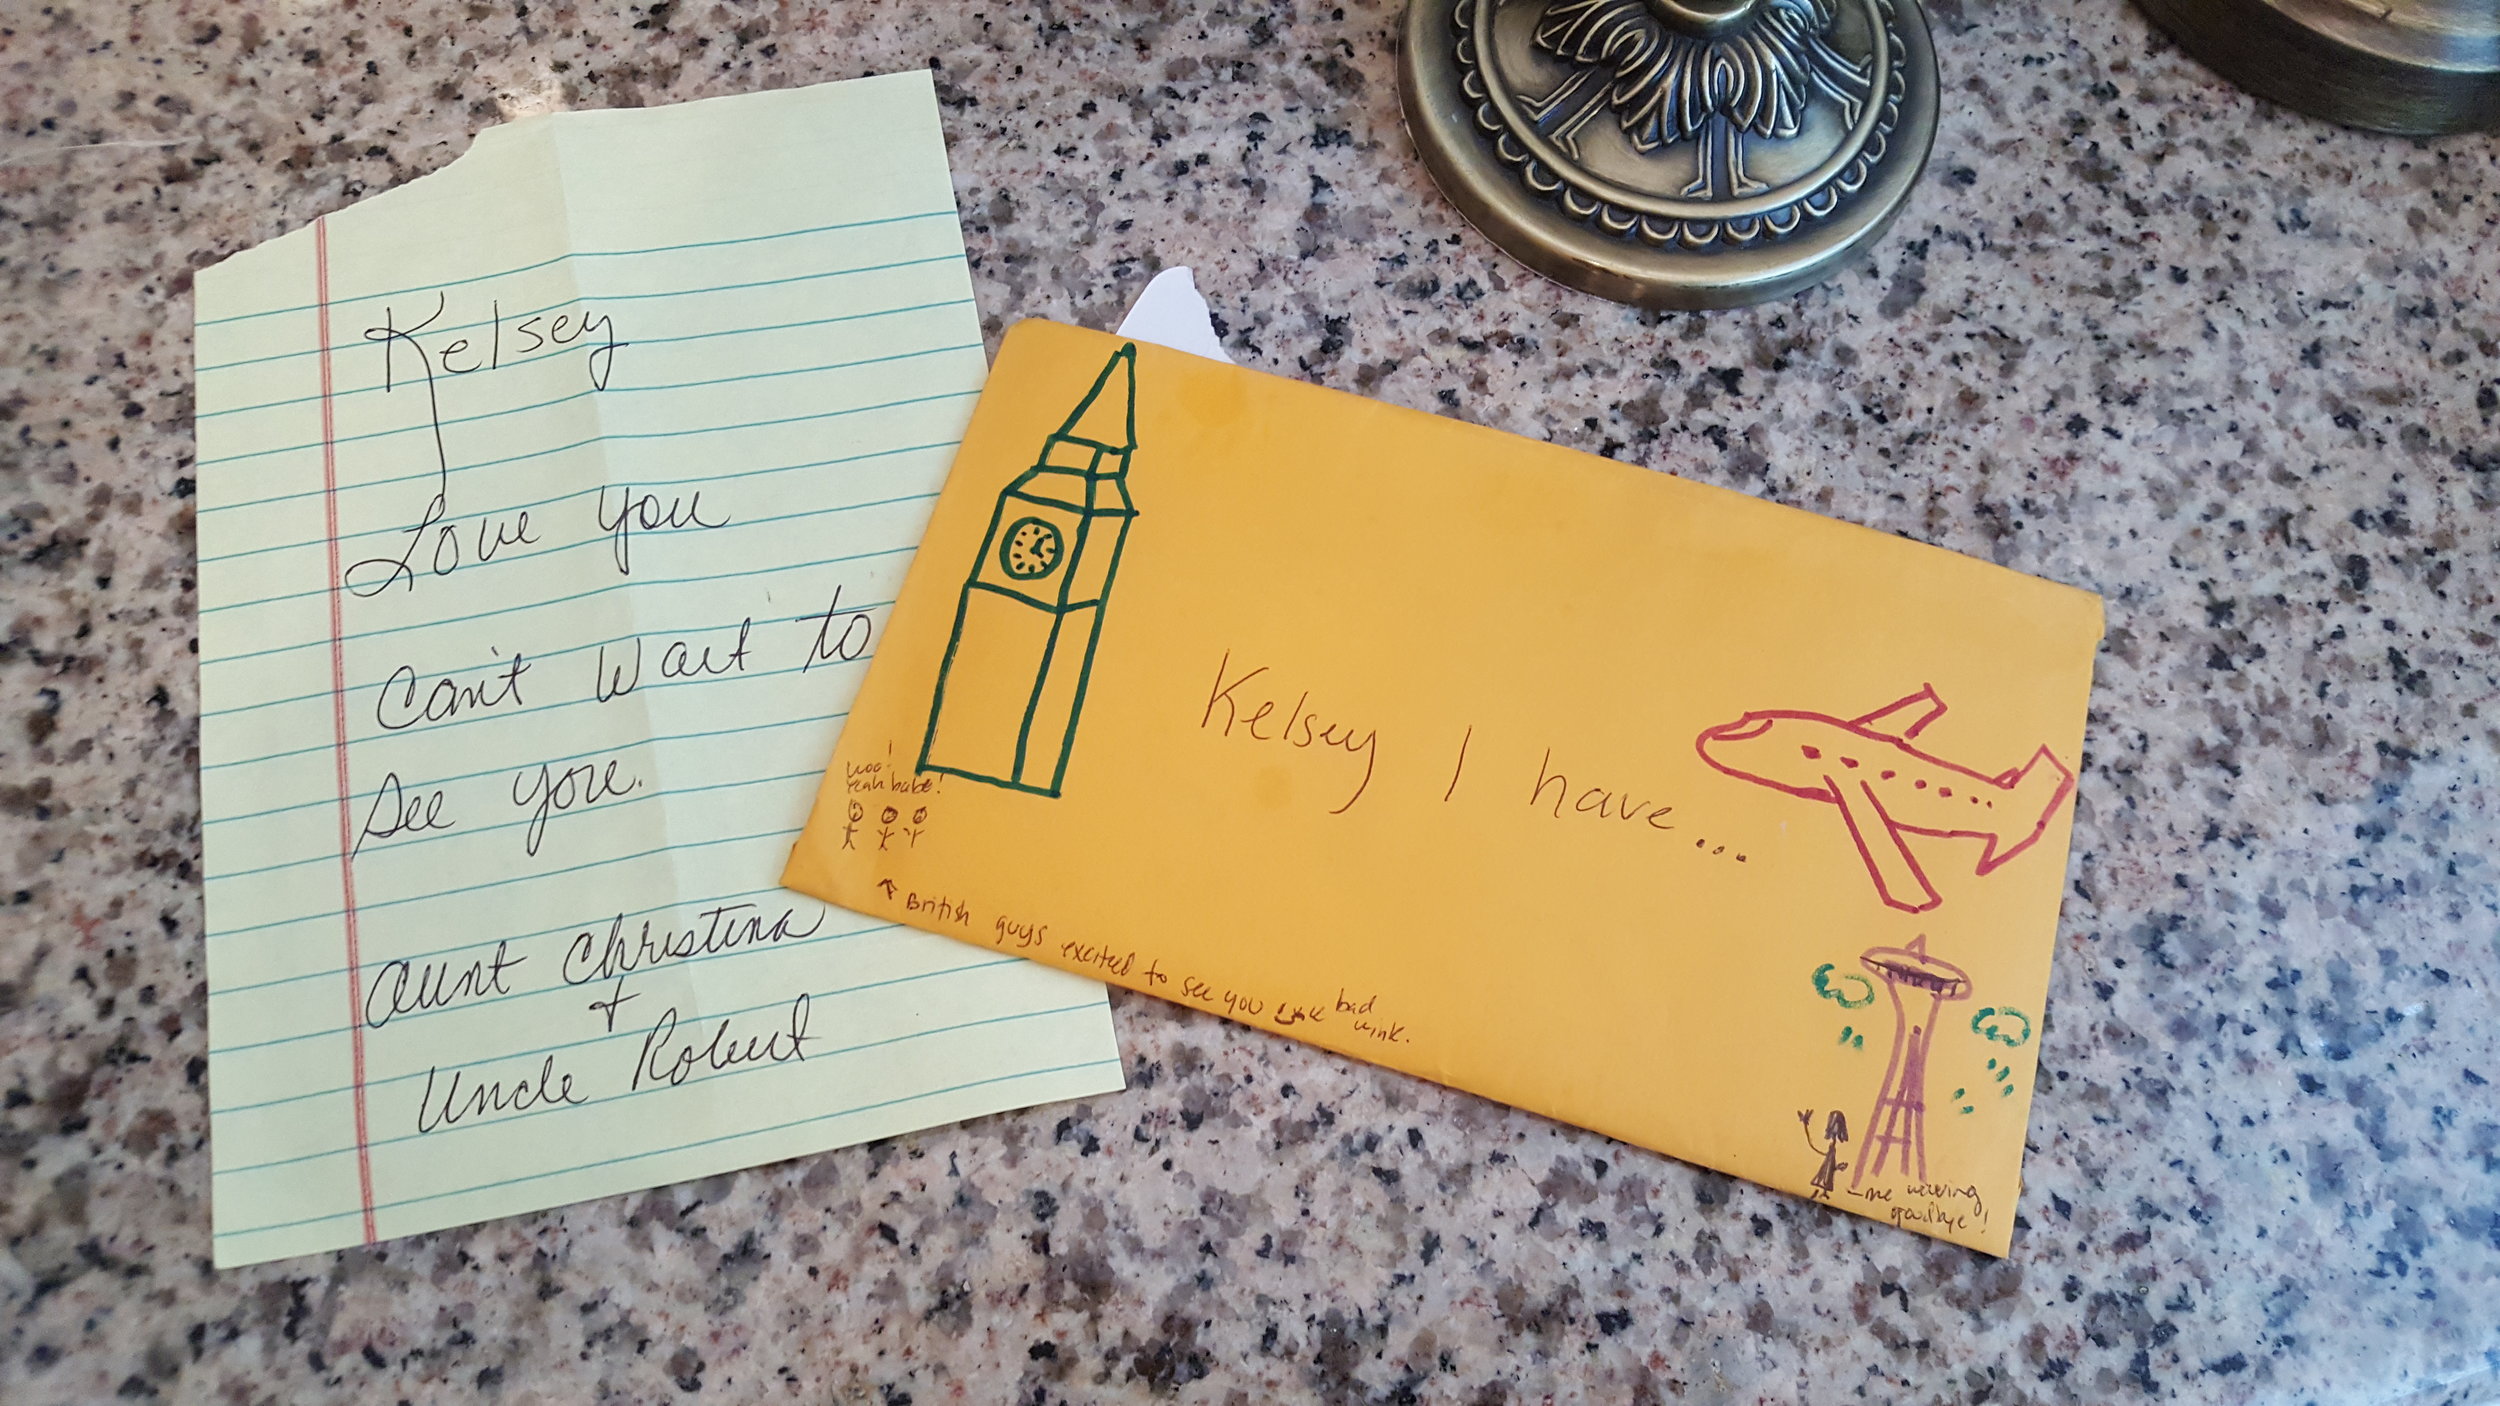 Kelsey
Love you
Can't Wait to
See you.
Aunt Christina
+
Uncle Robert
Kelsey I have...
woo!
Yeah babe!
British guys excited to see you bad
wink.
-me waving
goodbye!